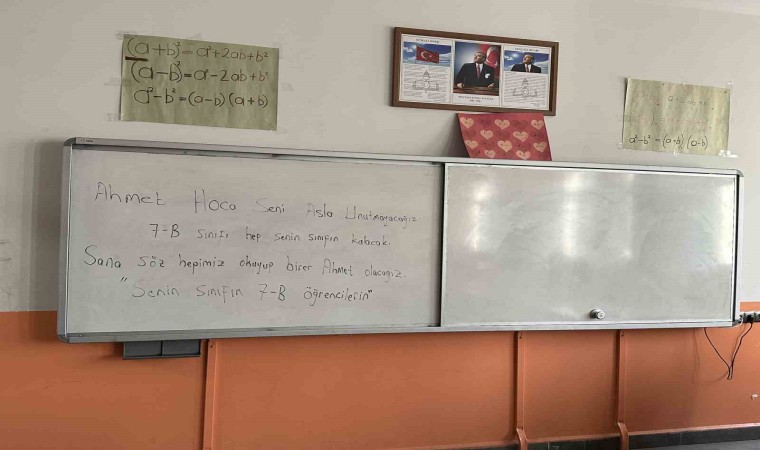 (a+b)²=a²+2ab+b²
(a-b)²=a²-2ab+b²
a²-b²=(a-b)(a+b)
a²-b²=(a+b)(a-b)
Ahmet Hoca Seni Asla Unutmayacağız
7-B sınıfı hep senin sınıfın kalacak.
Sana söz hepimiz okuyup birer Ahmet olacağız.
"Senin Sınıfın 7-B öğrencilerin"